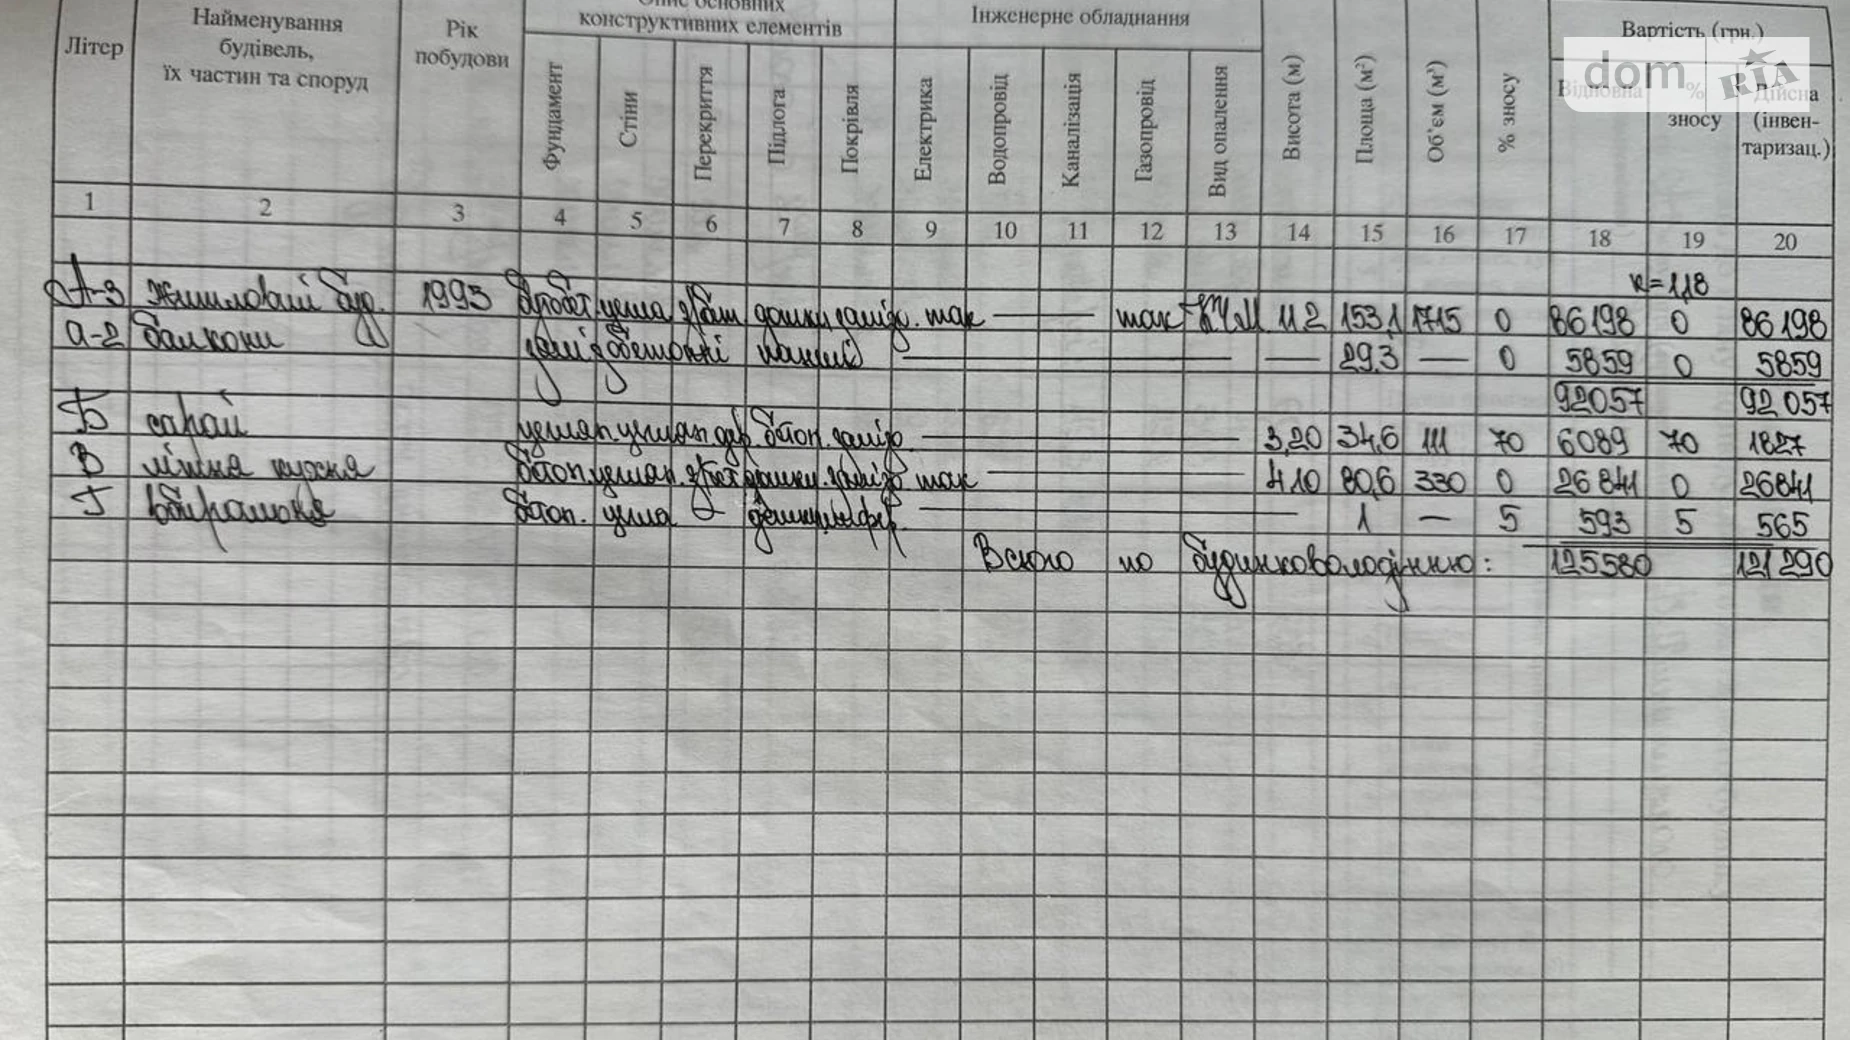 Опис основних
Найменування
будівель,
їх частин та споруд
Літер
Рік
побудови
конструктивних елементів
Інженерне обладнання
Вартість (грн.)
Фундамент
Стіни
Перекриття
Підлога
Покрівля
Електрика
Водопровід
Каналізація
Газопровід
Вид опалення
Висота (м)
Площа (м²)
Об'єм (м³)
% зносу
Відновна
% зносу
Дійсна
(інвен-
таризац.)
dom RIA
1 2 3 4 5 6 7 8 9 10 11 12 13 14 15 16 17 18 19 20
к=1,18
А-3 житловий буд. 1993 цегла з/бет дощки залізо. так — так 11 2 153,1 1715 0 86198 0 86198
а-2 балкони — — 29,3 — 0 5859 0 5859
92057 92057
Б сарай цеглян. цеглян дер. бетон. залізо — 3,20 34,6 111 70 6089 70 1827
В літня кухня бетон. цеглян. з/бет дощки. залізо так — 4,10 80,6 330 0 26841 0 26841
Г вбиральня бетон. цегла — шифер. — 1 — 5 593 5 565
Всього по будинковолодінню: 125580 121290